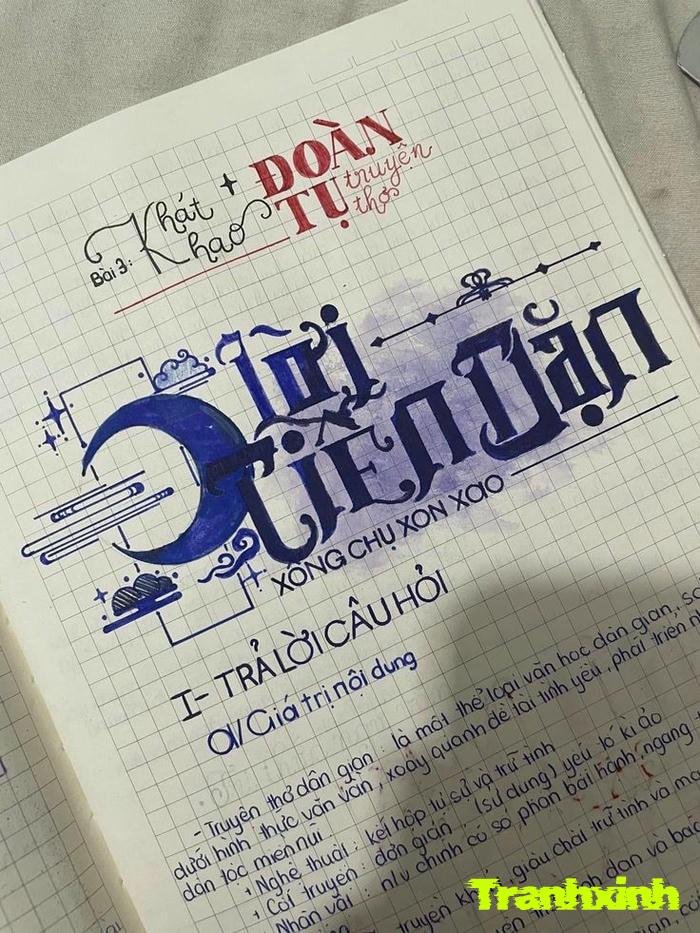 Bài 3: Khát Khao + ĐOÀN TỤ truyện thơ
Lời
TIỄN DẶN
XỐNG CHỤ XON XAO
I- TRẢ LỜI CÂU HỎI
a/ Giá trị nội dung
- Truyện thơ dân gian: là một thể loại văn học dân gian, sá
dưới hình thức văn vần, xoay quanh đề tài tình yêu, phát triển
dân tộc miền núi
+ Nghệ thuật: kết hợp tự sự và trữ tình
+ Cốt truyện: đơn giản, (sử dụng) yếu tố kì ảo
Nhân vật: n/v chính có số phận bất hạnh, ngang
truyện giàu chất trữ tình và
dan và
Tranhxinh